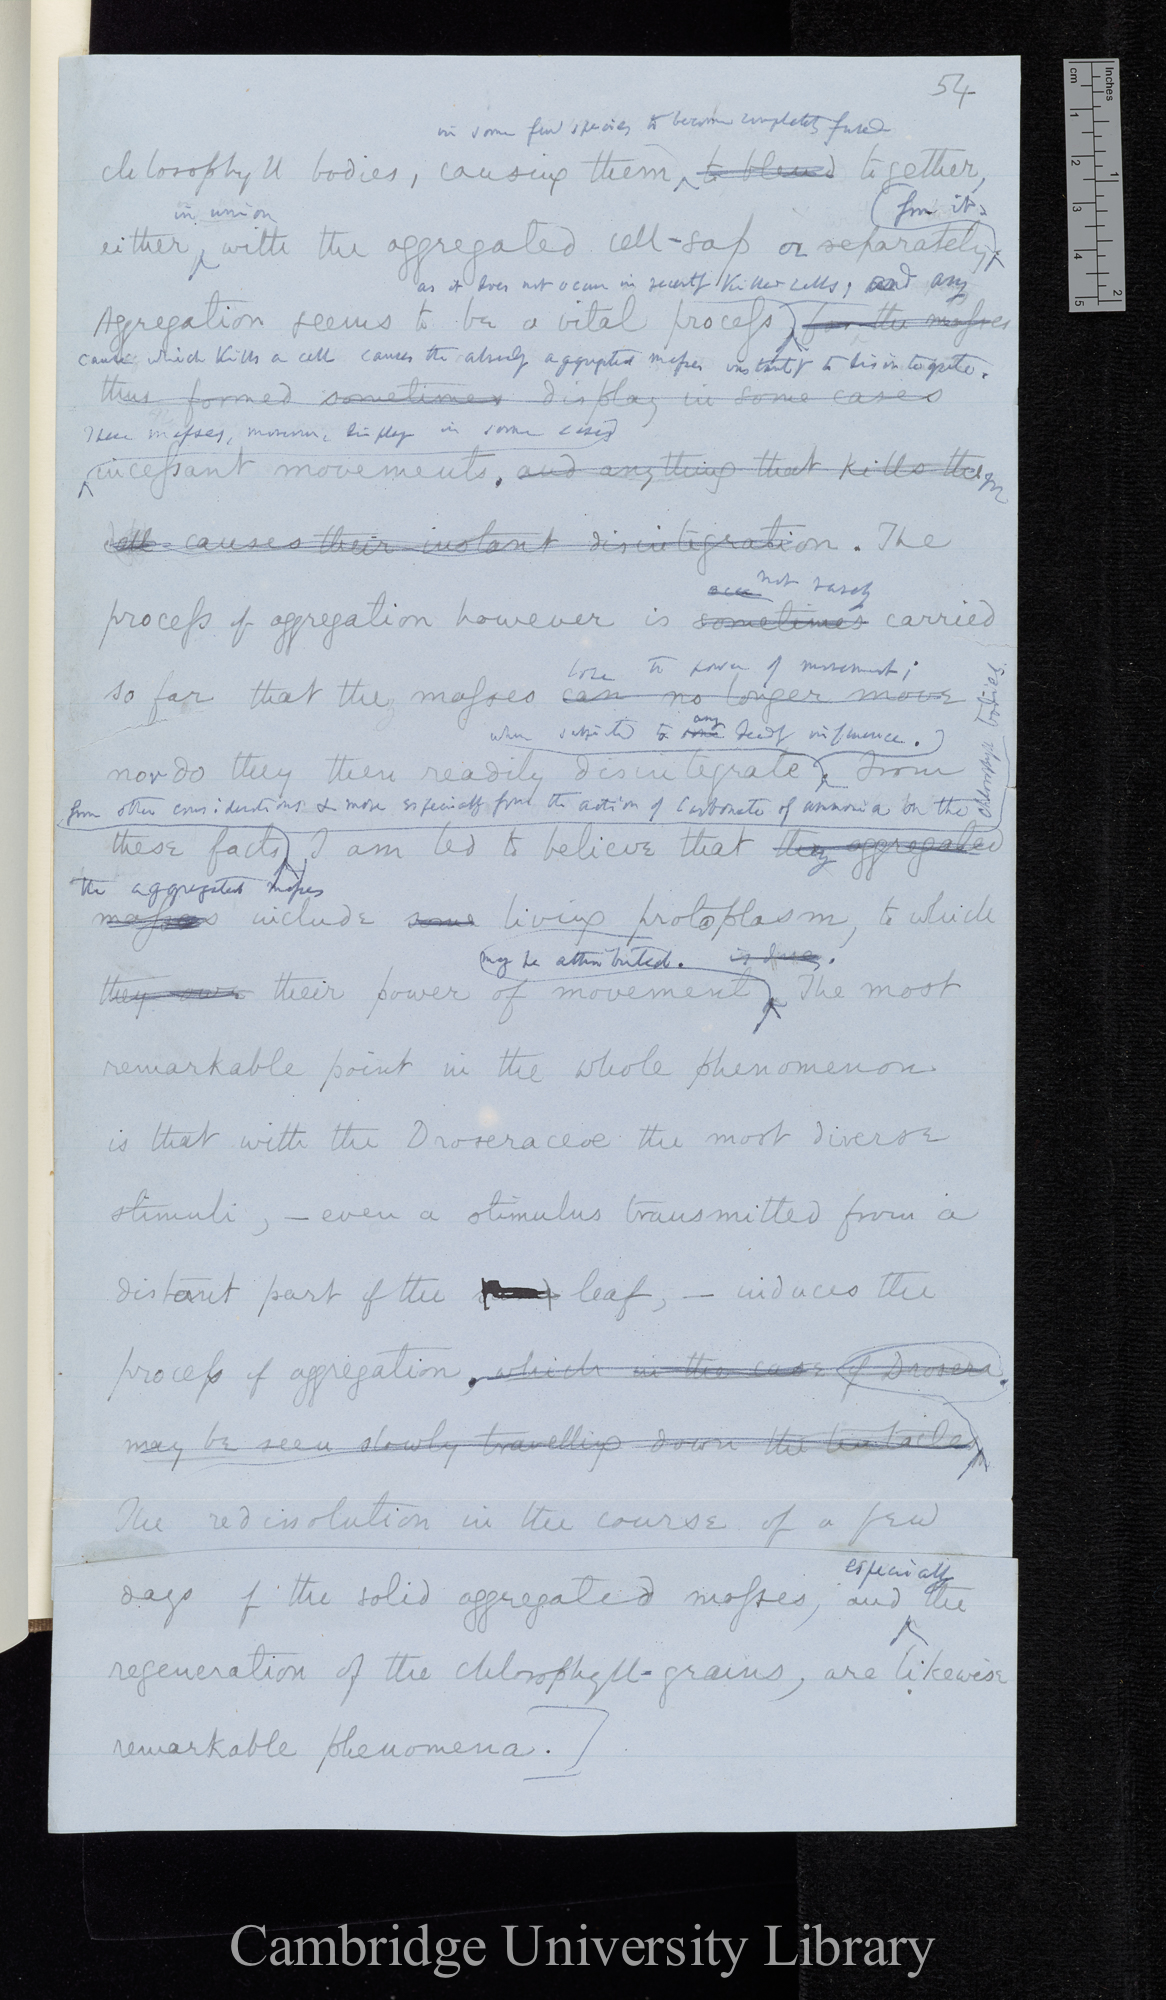 54
in some few species to become completely fused
chlorophyll bodies, causing them to blend together,
in union
(from it.
either, with the aggregated cell-sap or separately
as it does not occur in recently killed cells; and any
Aggregation seems to be a vital process, for the masses
cause which kills a cell causes the already aggregated masses instantly to disintegrate.
thus formed sometimes display in some cases
These masses, moreover, display in some cases
incessant movements. and anything that kills the
cell causes their instant disintegration. The
not rarely
process of aggregation however is sometimes carried
lose the power of movement;
so far that the masses can no longer move
when subjected to some any deadly influence.
nor do they then readily disintegrate. From
from other considerations & more especially from the action of Carbonate of ammonia on the
chlorophyll bodies.
these facts, I am led to believe that they aggregated
the aggregated masses
masses include some living protoplasm, to which
may be attributed. is due.
they owe their power of movement. The most
remarkable point in the whole phenomenon
is that with the Droseraceae the most diverse
stimuli, — even a stimulus transmitted from a
distant part of the leaf, — induces the
process of aggregation. which in the case of Drosera.
may be seen slowly travelling down the tentacles
The redissolution in the course of a few
especially
days of the solid aggregated masses, and the
regeneration of the chlorophyll-grains, are likewise
remarkable phenomena.]
inches
cm
1
2
3
4
5
1
2
Cambridge University Library